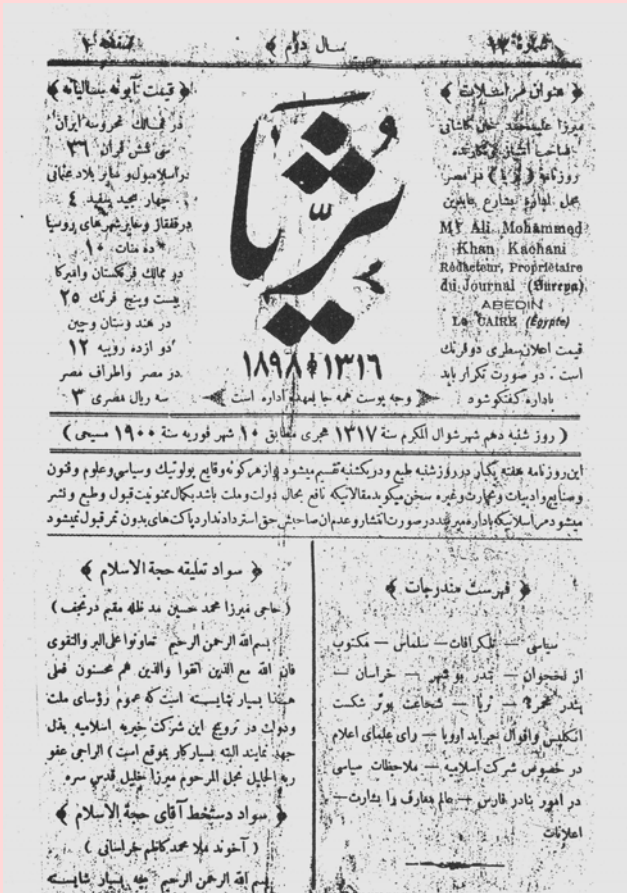 شماره ۱۲
سال دوم
صفحه ۱
عنوان مراسلات
میرزا علیمحمد خان کاشانی
صاحب امتیاز و نگارنده
روزنامه (ثریا) در مصر
محل اداره بشارع عابدین
Mr Ali Mohammed
Khan Kachani
Rédacteur, Propriétaire
du Journal (Sureya)
ABEDIN
Le CAIRE (Égypte)
قیمت اعلان سطری دو فرنک
است . در صورت تکرار باید
باداره گفتگو شود
ثریا
۱۳۱۶ ۱۸۹۸
وجه پوست همه جا بعهده اداره است
قیمت آبونه سالیانه
در ممالک محروسه ایران
سی شش قران ۳۶
در اسلامبول و سایر بلاد عثمانی
چهار مجید سفید ۴
در قفقاز و سایر شهرهای روسیا
ده منات ۱۰
در ممالک فرنگستان و امریکا
بیست و پنج فرنک ۲۵
در هندوستان و چین
دو ازده روپیه ۱۲
در مصر واطراف مصر
سه ریال مصری ۳
( روز شنبه دهم شهر شوال المکرم سنة ۱۳۱۷ هجری مطابق ۱۰ شهر فوریه سنة ۱۹۰۰ مسیحی )
این روزنامه هفتهٔ یکبار در روز شنبه طبع و در یکشنبه تقسیم میشود و از هر گونه وقایع پولوتیک و سیاسی و علوم و فنون
و صنایع و ادبیات و تجارت و غیره سخن میگوید مقالاتیکه نافع بحال دولت و ملت باشد بکمال ممنونیت قبول و طبع و نشر
میشود مراسلاتیکه باداره میرسد در صورت انتشار و عدم ان صاحبش حق استرداد ندارد پاکت های بدون تمر قبول نمیشود
فهرست مندرجات
سیاسی — تلگرافات — سلماس — مکتوب
از نخجوان — بندر بوشهر — خراسان —
بندر — ثریا — شجاعت بوئر شکست
انگلیس و اقوال جراید اروپا — رای علمای اعلام
در خصوص شرکت اسلامیه — ملاحظات سیاسی
در امور بنادر فارس — عالم معارف را بشارت —
اعلانات
سواد تعلیقه حجة الاسلام
( حاجی میرزا محمد حسین مد ظله مقیم در نجف )
بسم الله الرحمن الرحیم تعاونوا علی البر والتقوی
فان الله مع الذین اتقوا والذین هم محسنون فعلی
هذا بسیار شایسته است که عموم رؤسای ملت
ودولت در ترویج این شرکت خیریه اسلامیه بذل
جهد نمایند البته بسیار کار بموقع است ) الراجی عفو
ربه الجلیل نجل المرحوم میرزا خلیل قدس سره
سواد دستخط آقای حجة الاسلام
( آخوند ملا محمد کاظم خراسانی )
بسم الله الرحمن الرحیم بسیار شایسته